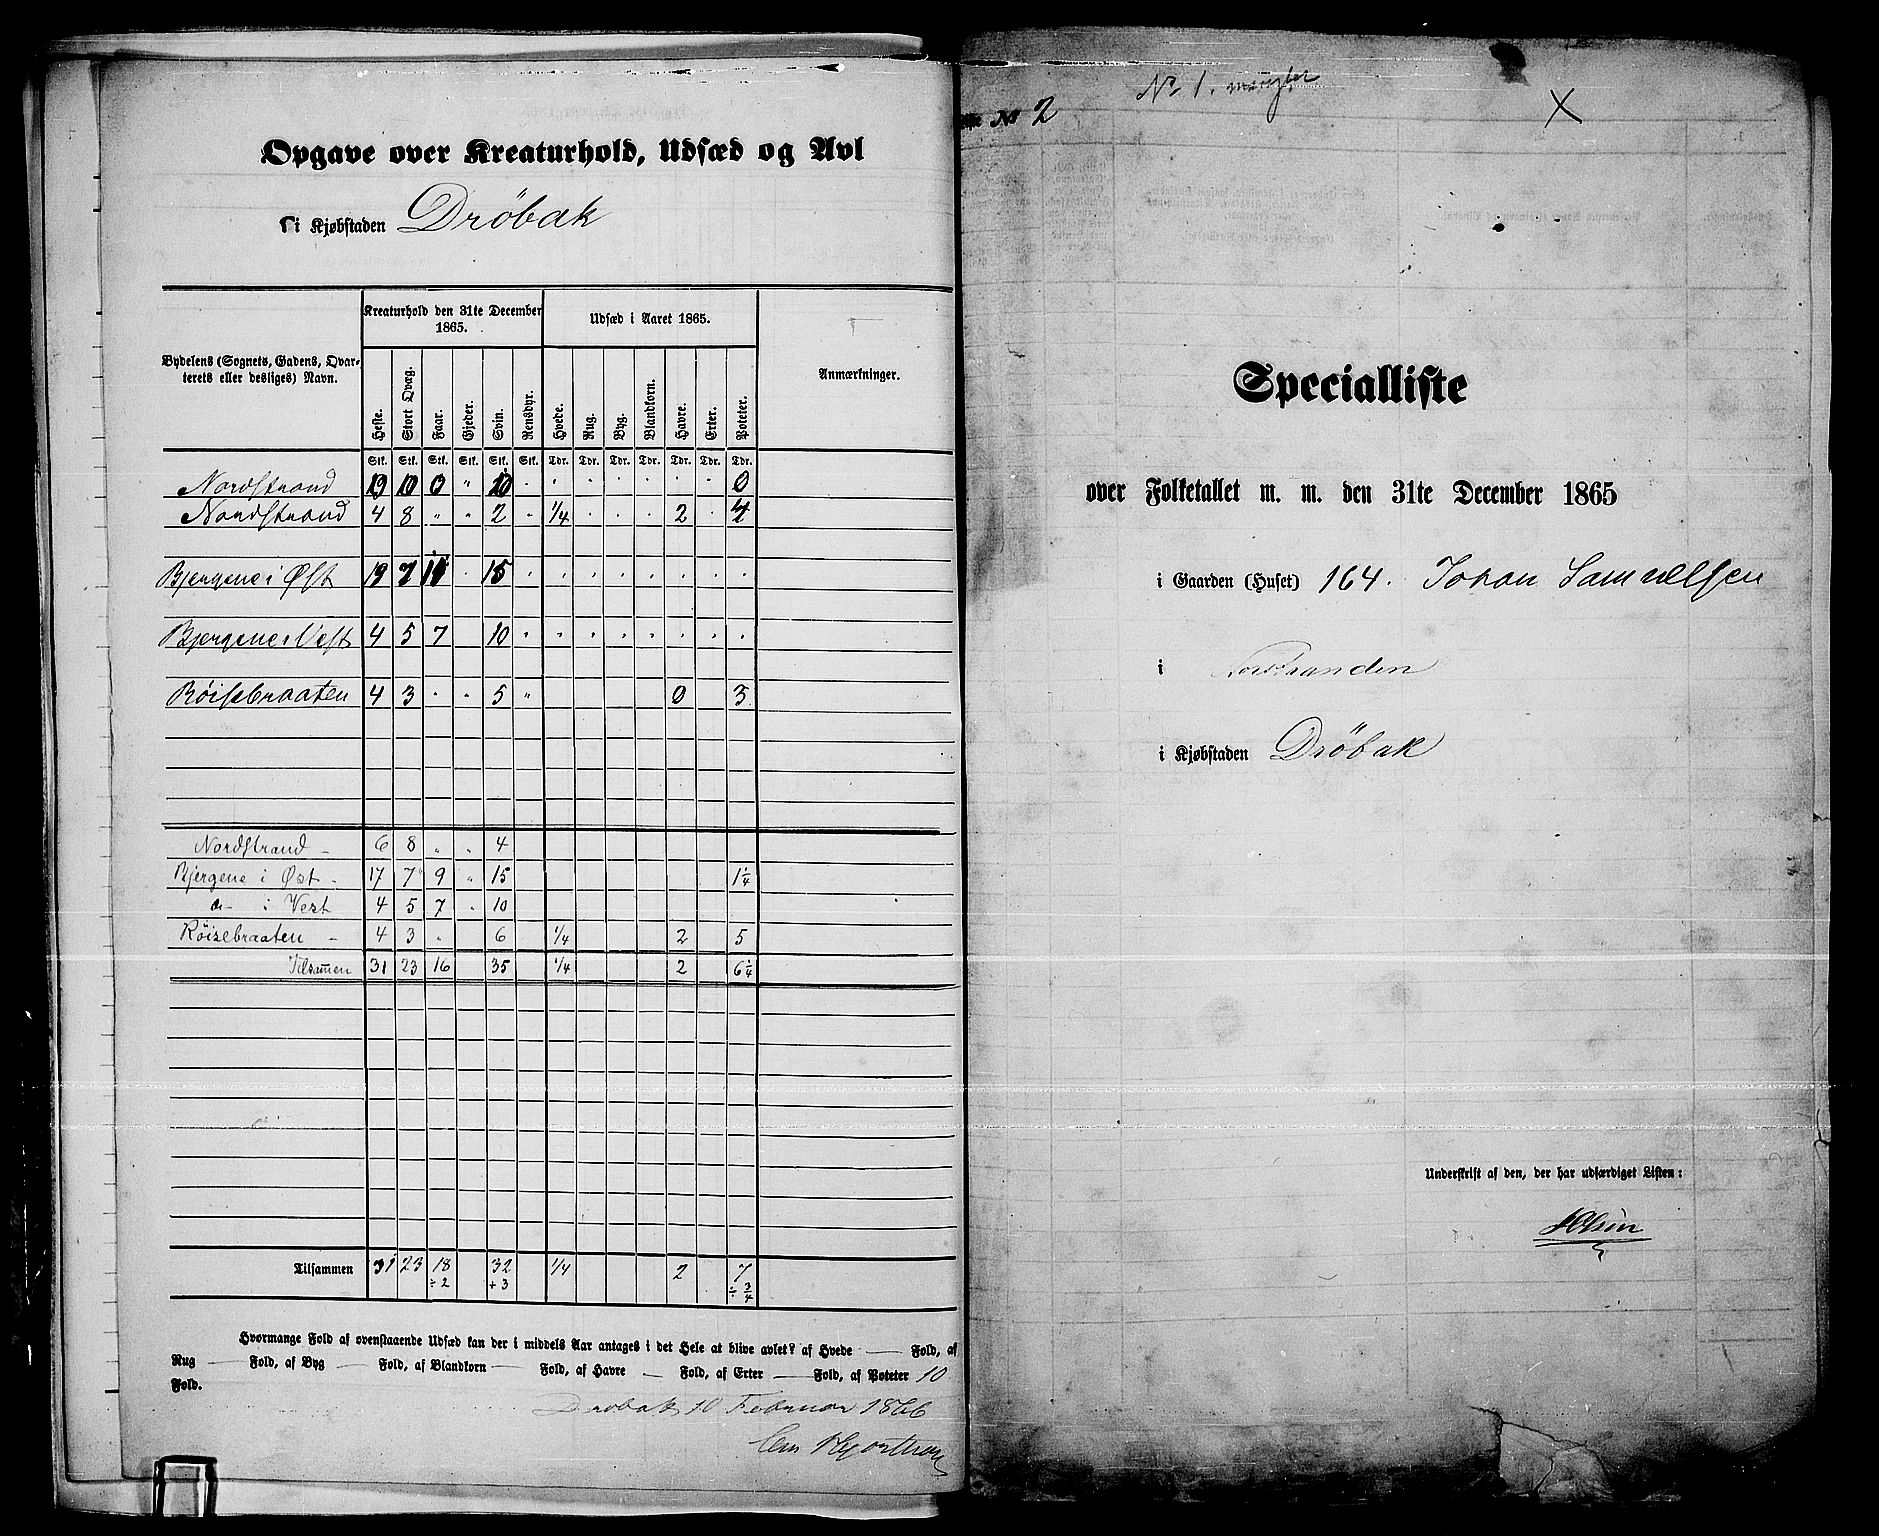 Opgave over Kreaturhold, Udsæd og Avl
i Kjøbstaden Dröbak
Kreaturhold den 31te December 1865. Udsæd i Aaret 1865.
Bydelens (Sognets, Gadens, Qvarterets eller desliges) Navn. Heste. Stort Qvæg. Faar. Gjeder. Svin. Rensdyr. Hvede. Rug. Byg. Blandkorn. Havre. Erter. Poteter. Anmærkninger.
Stk. Stk. Stk. Stk. Stk. Stk. Tdr. Tdr. Tdr. Tdr. Tdr. Tdr. Tdr.
Nordstrand 10 0 " 10 0
Nordstrand 4 8 " " 2 " 1/4 2 4
Bjergene i Øst 19 7 15
Bjergene i Vest 4 5 7 10 "
Röisebraaten 4 3 " " 5 " 0 3
Nordstrand - 6 8 " " 4
Bjergene i Øst - 17 7 9 " 15 1 1/4
do - i Vest 4 5 7 " 10
Röisebraaten - 4 3 " 6 1/4 2 5
Tilsammen 31 23 16 35 1/4 2 6 1/4
Tilsammen 31 23 18 32 1/4 2 7
÷ 2 + 3 ÷ 3/4
Hvormange Fold af ovenstaaende Udsæd kan der i middels Aar antages i det Hele at blive avlet? af Hvede — Fold, af
Rug — Fold, af Byg — Fold, af Blandkorn — Fold, af Havre — Fold, af Erter — Fold, af Poteter 10
Fold.
Drobak 10 Februar 1866
No 2
No. 1. mangler
X
Specialliste
over Folketallet m. m. den 31te December 1865
i Gaarden (Huset) 164. Johan Samuelsen
i Nordstranden
i Kjøbstaden Dröbak
Underskrift af den, der har udfærdiget Listen: